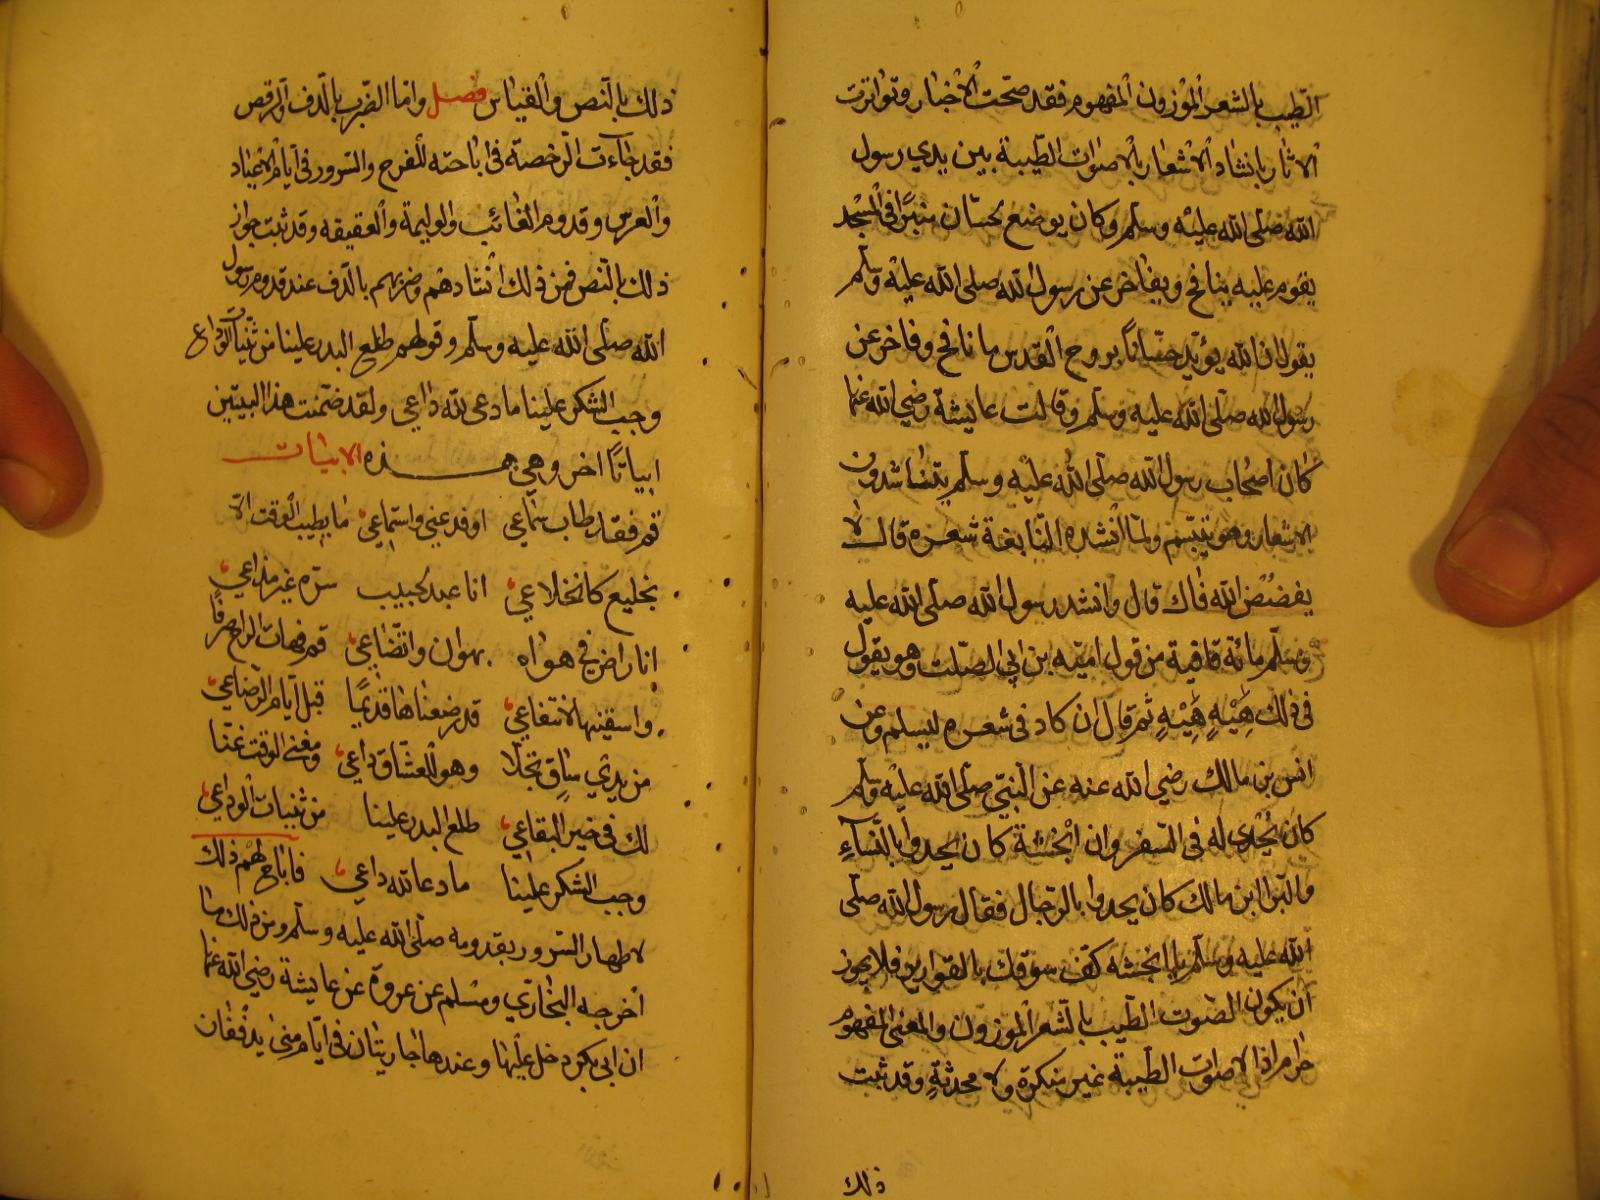 الطيب بالشعر الموزون المفهوم فقد صحت الاخبار وتواترت
الاثار بانشاد الاشعار بالاصوات الطيبة بين يدي رسول
الله صلى الله عليه وسلم وكان يوضع لحسان منبرًا في المسجد
يقوم عليه ينافح ويفاخر عن رسول الله صلى الله عليه وسلم
يقول ان الله يؤيد حسانًا بروح القدس ما نافح وفاخر عن
رسول الله صلى الله عليه وسلم وقالت عايشة رضي الله عنها
كان اصحاب رسول الله صلى الله عليه وسلم يتناشدون
الاشعار وهو يتبسم ولما انشده النابغة شعره قال لا
يفضض الله فاك قال وانشد رسول الله صلى الله عليه
وسلم مائة قافية من قول امية بن ابي الصلت وهو يقول
في ذلك هِيْهٍ هِيْهٍ ثم قال ان كاد في شعره ليسلم وعن
انس بن مالك رضي الله عنه عن النبي صلى الله عليه وسلم
كان يُحْدى له في السفر وان انجشة كان يحدوا بالنسآءِ
والبرا ابن مالك كان يحدوا بالرجال فقال رسول الله صلى
الله عليه وسلم يا انجشه كفّ سوقك بالقوارير فلا يجوز
ان يكون الصوت الطيب بالشعر الموزون والمعنى المفهوم
حرام اذا الاصوات الطيبة غير منكرة ولا محدثةٍ وقد ثبت
ذلك
ذلك بالنص والقياس فصل واما الضرب بالدف والرقص
فقد جآءت الرخصة في اباحته للفرح والسرور في ايام الاعياد
والعرس وقدوم الغائب والوليمة والعقيقه وقد ثبت جواز
ذلك بالنص فمن ذلك انشادهم وضربهم بالدف عند قدوم رسول
الله صلى الله عليه وسلم وقولهم طلع البدر علينا من ثنيات الوداع
وجب الشكر علينا ما دعى لله داعي ولقد ضمنت هذا البيتين
ابياتًا اخر وهي هذه الابيات
قم فقد طاب سماعي اوفد عني واستماعي ما يطيب الوقت الا
بخليع كانخلاعي انا عبد لحبيب سره غير مذاعي
انا راض في هواه بهوان واتضاعي قم فهات الراح صرفًا
واسقنيها لانتفاعي قد رضعناها قديمًا قبل ايام الرضاعي
من يدي ساقٍ تجلا وهو للعشاق داعي ومغني الوقت غنا
لك في خير البقاعي طلع البدر علينا من ثنيات الوداعي
وجب الشكر علينا ما دعا لله داعي فاباح لهم ذلك
لاظهار السرور بقدومه صلى الله عليه وسلم ومن ذلك ما
اخرجه البخاري ومسلم عن عروة عن عايشة رضي الله عنها
ان ابي بكر دخل عليها وعندها جاريتان في ايام منى يدففان